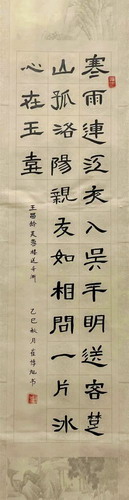 寒雨連江夜入吳平明送客楚
山孤洛陽親友如相問一片冰
心在玉壺
王昌齡芙蓉樓送辛漸
乙巳秋月 博 书